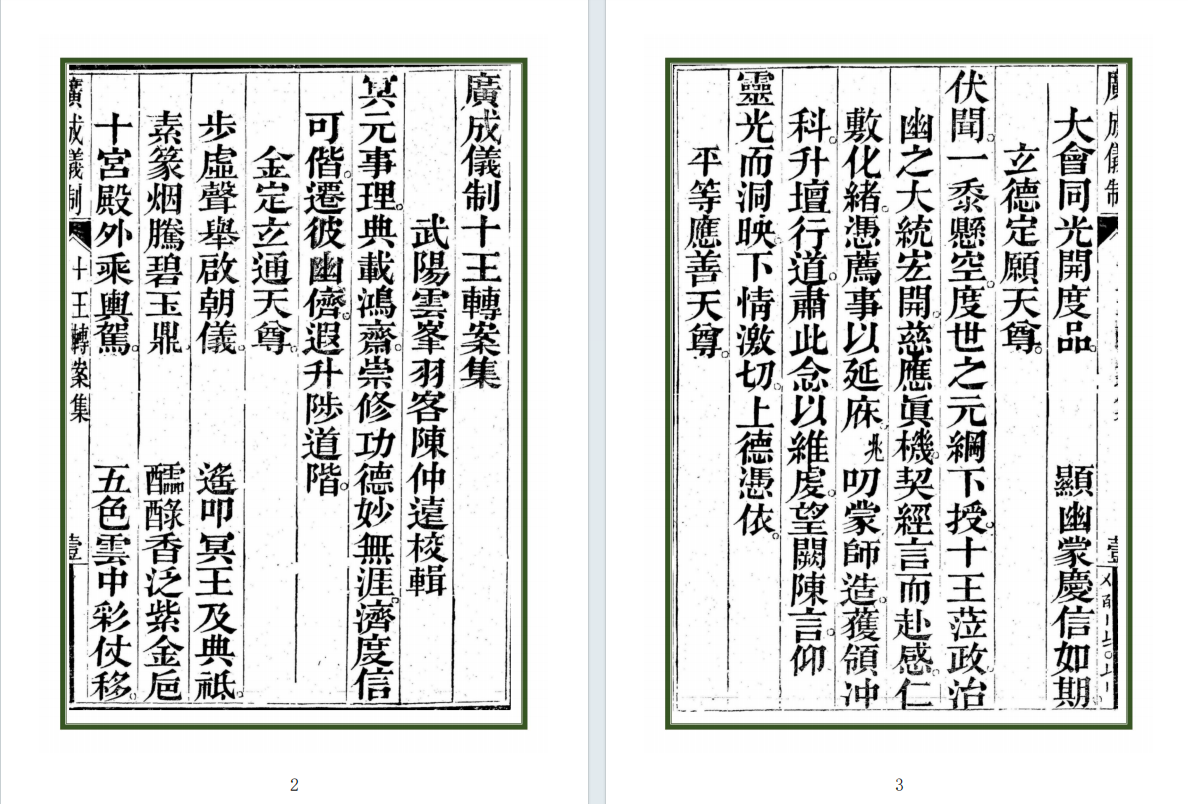 廣成儀制十王轉案集
武陽雲峯羽客陳仲遠校輯
冥元事理。典載鴻齋。崇修功德妙無涯。濟度信
可偕。遷彼幽儕。遐升陟道階。
金定玄通天尊。
步虛聲舉啟朝儀。 遙叩冥王及典祇。
素篆烟騰碧玉鼎 醹醁香泛紫金巵
十宮殿外乘輿駕。 五色雲中彩仗移。
廣成儀制 十王轉案集 壹
2
廣成儀制 壹
大會同光開度品。 顯幽蒙慶信如期
玄德定願天尊。
伏聞。一黍懸空。度世之元綱下授。十王蒞政。治
幽之大統宏開。慈應眞機。契經言而赴感。仁
敷化緒。憑薦事以延庥。兆 叨蒙師造。獲領冲
科。升壇行道。肅此念以維虔。望闕陳言。仰
靈光而洞映。下情激切。上德憑依。
平等應善天尊。
3